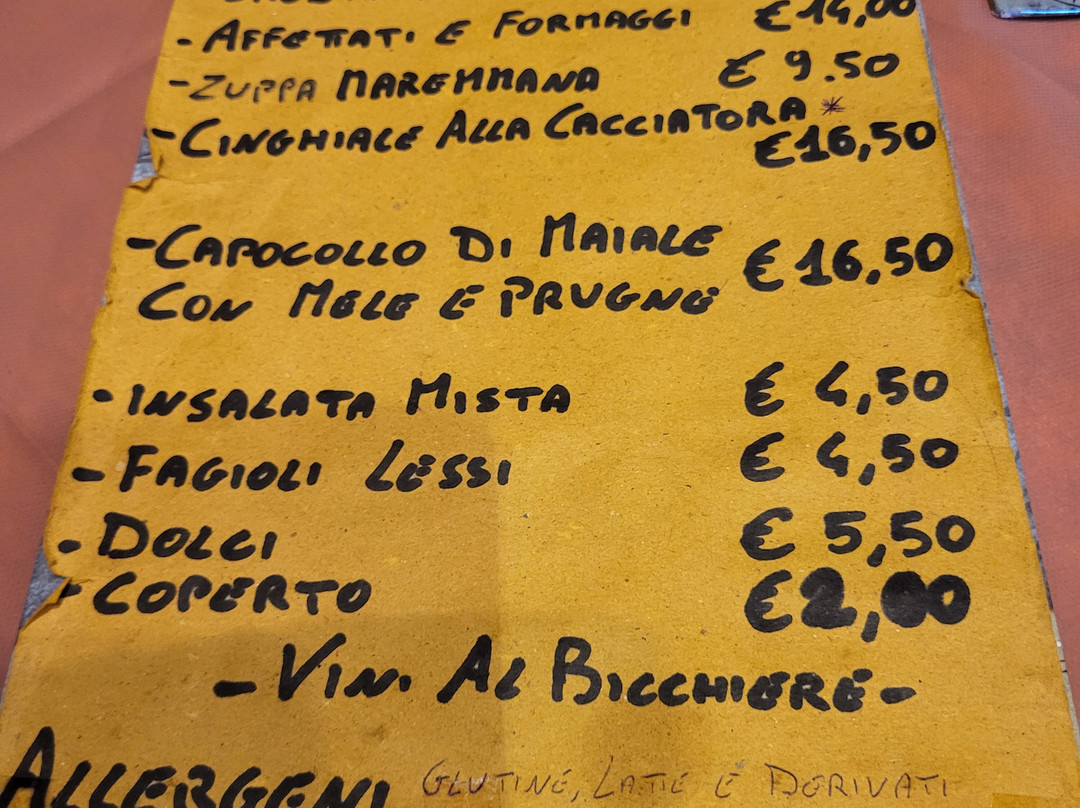 - AFFETTATI E FORMAGGI € 14,00
- ZUPPA MAREMMANA € 9.50
- CINGHIALE ALLA CACCIATORA *
€ 16,50
- CAPOCOLLO DI MAIALE € 16,50
CON MELE E PRUGNE
- INSALATA MISTA € 4,50
- FAGIOLI LESSI € 4,50
- DOLCI € 5,50
- COPERTO € 2,00
- VINI AL BICCHIERE -
ALLERGENI GLUTINE, LATTE E DERIVATI